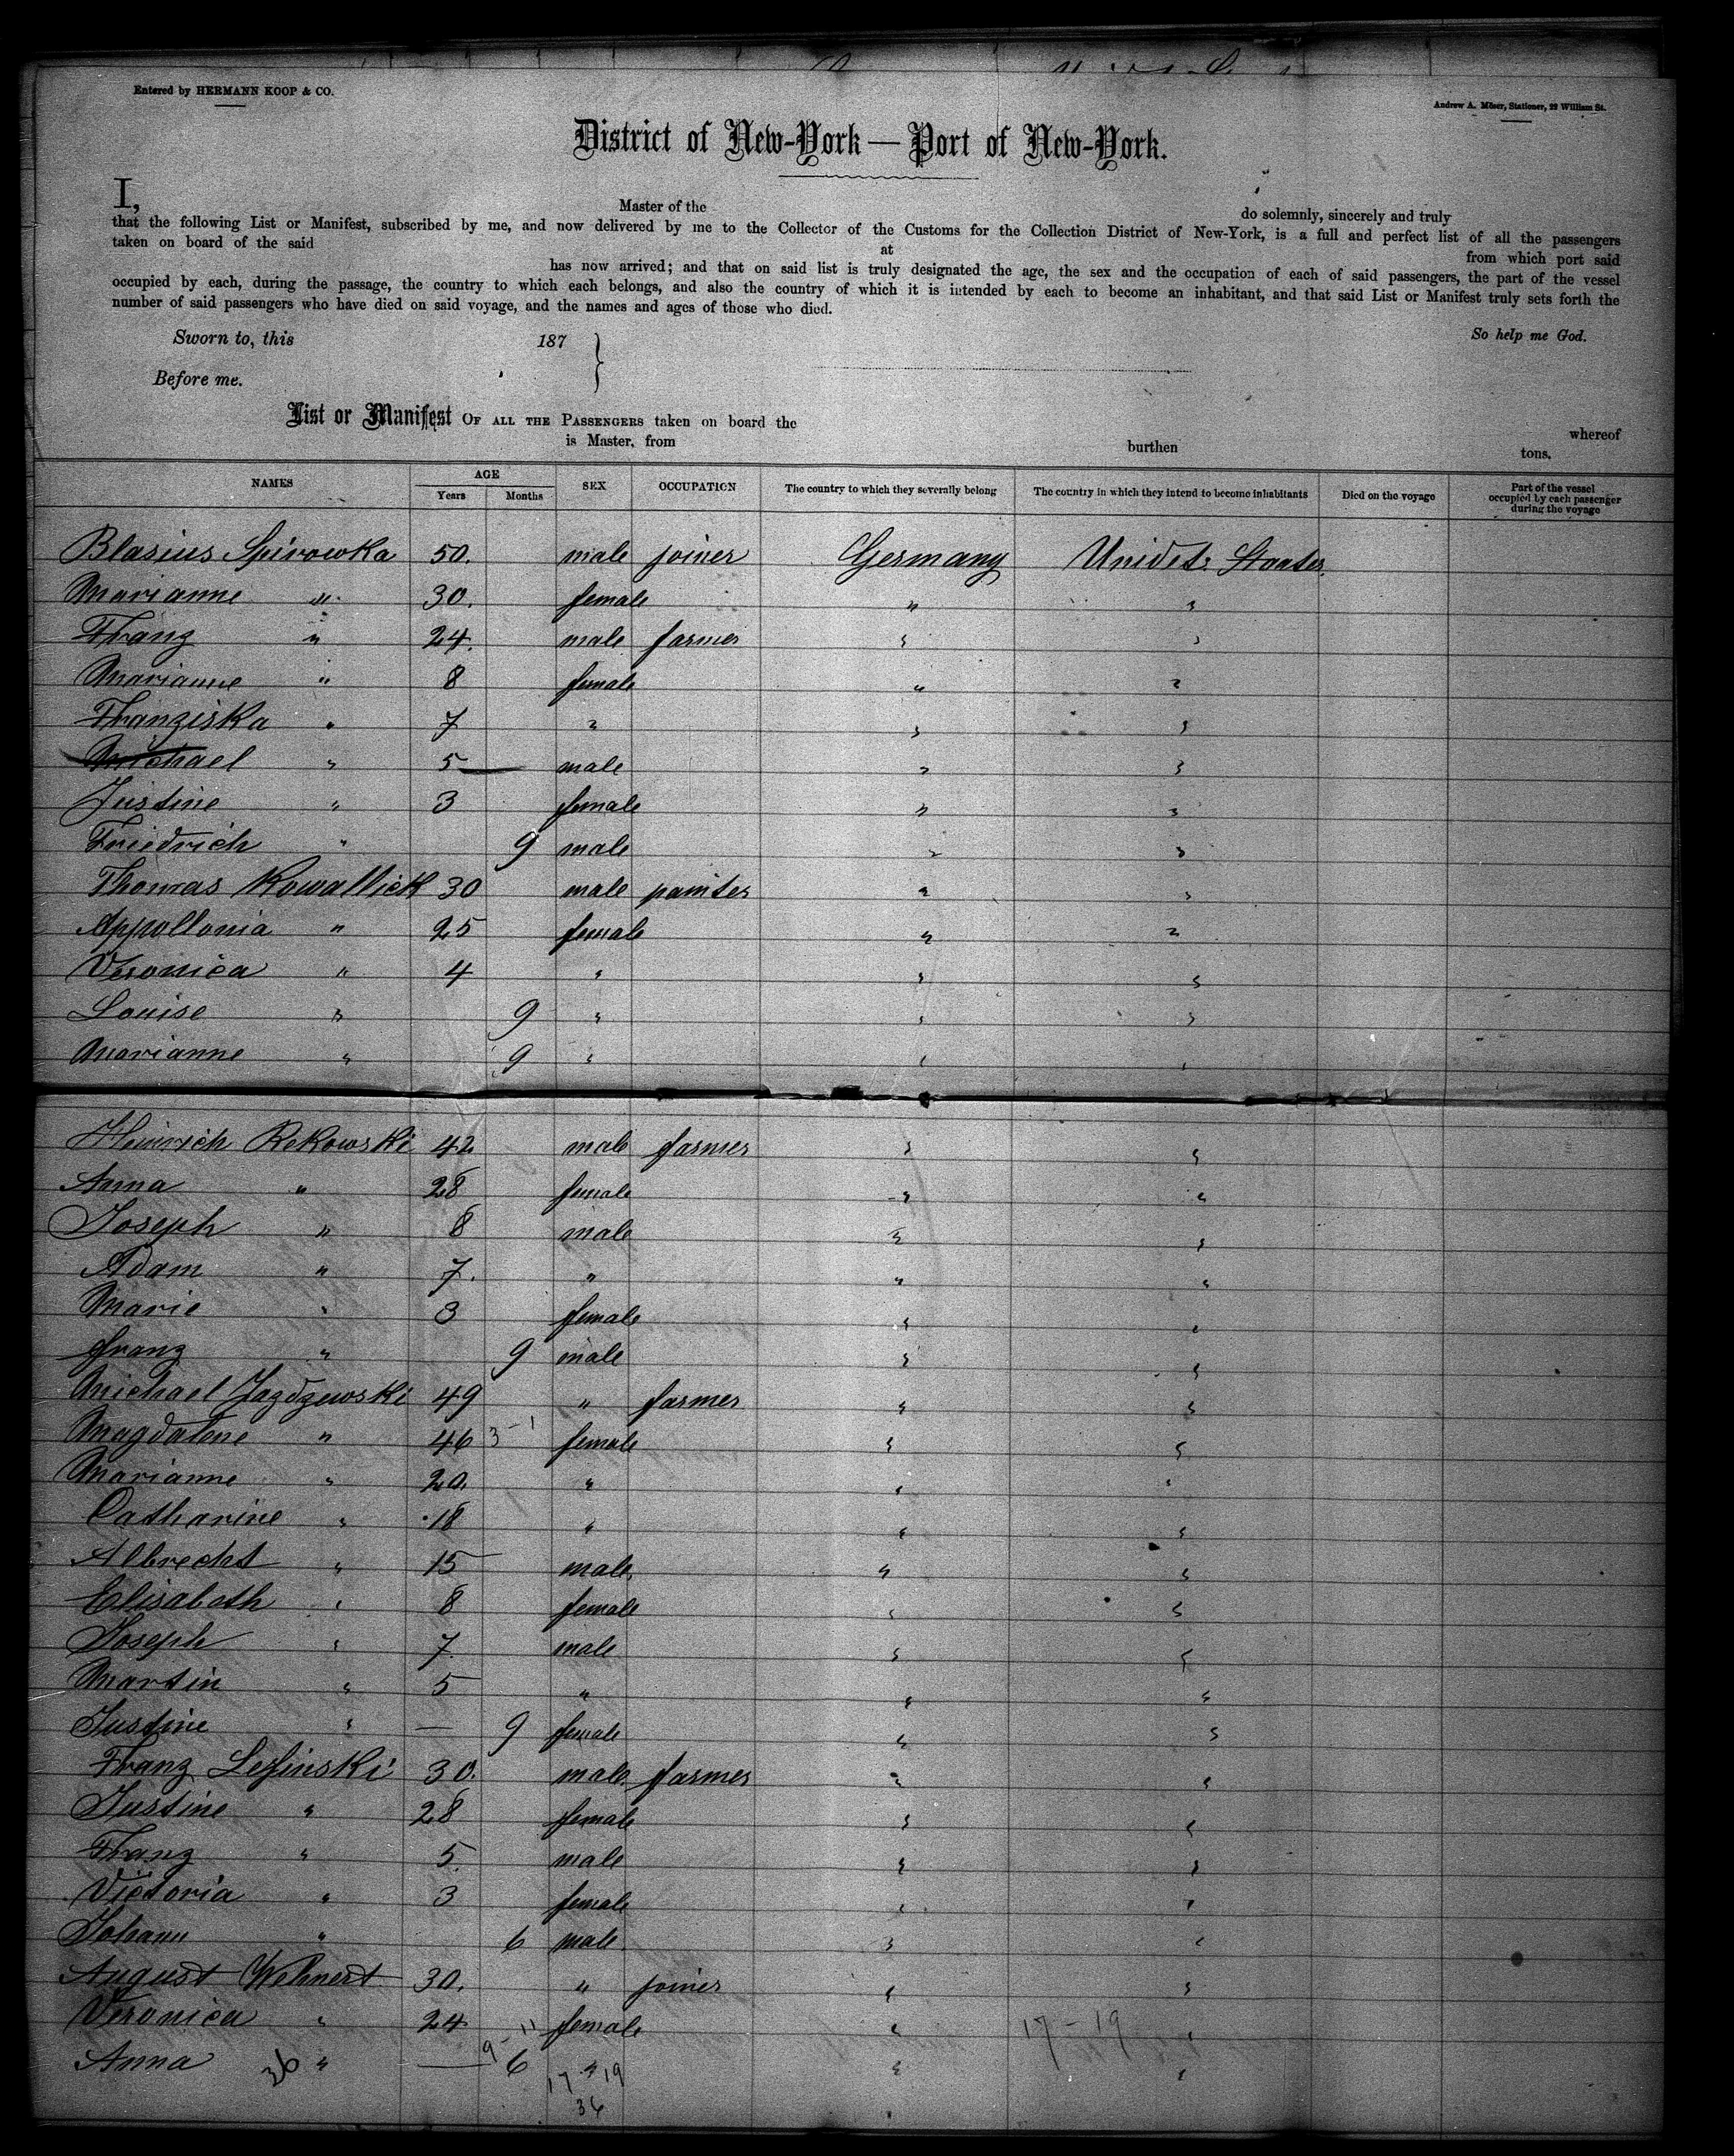 Entered by HERMANN KOOP & CO.
Andrew A. Möser, Stationer, 22 William St.
District of New-York — Port of New-York.
I, Master of the do solemnly, sincerely and truly
that the following List or Manifest, subscribed by me, and now delivered by me to the Collector of the Customs for the Collection District of New-York, is a full and perfect list of all the passengers
taken on board of the said at from which port said
has now arrived; and that on said list is truly designated the age, the sex and the occupation of each of said passengers, the part of the vessel
occupied by each, during the passage, the country to which each belongs, and also the country of which it is intended by each to become an inhabitant, and that said List or Manifest truly sets forth the
number of said passengers who have died on said voyage, and the names and ages of those who died.
Sworn to, this 187 So help me God.
Before me.
List or Manifest OF ALL THE PASSENGERS taken on board the whereof
is Master, from burthen tons.
NAMES AGE Years Months SEX OCCUPATION The country to which they severally belong The country in which they intend to become inhabitants Died on the voyage Part of the vessel occupied by each passenger during the voyage
Blasius Spirowka 50. male joiner Germany Unidet. Staates
Marianne " 30. female " "
Franz " 24. male farmer " "
Marianne " 8 female " "
Franziska " 7 " " "
Michael " 5 male " "
Justine " 3 female " "
Friedrich " 9 male " "
Thomas Kowallick 30 male painter " "
Appollonia " 25 female " "
Veronica " 4 " " "
Louise " 9 " " "
Marianne " 9 " " "
Heinrich Rekowski 42 male farmer " "
Anna " 28 female " "
Joseph " 8 male " "
Adam " 7. " " "
Marie " 3 female " "
Franz " 9 male " "
Michael Jazdzewski 49 " farmer " "
Magdalene " 46 3-1 female " "
Marianne " 20. " " "
Catharine " 18 " " "
Albrecht " 15 male " "
Elisabeth " 8 female " "
Joseph " 7. male " "
Martin " 5 " " "
Justine " — 9 female " "
Franz Leßinski 30. male farmer " "
Justine " 28 female " "
Franz " 5. male " "
Victoria " 3 female " "
Johann " 6 male " "
August Wehnert 30. " joiner " "
Veronica " 24 female " 17-19 "
Anna 36 " — 9-11 6 " " "
17-19
36